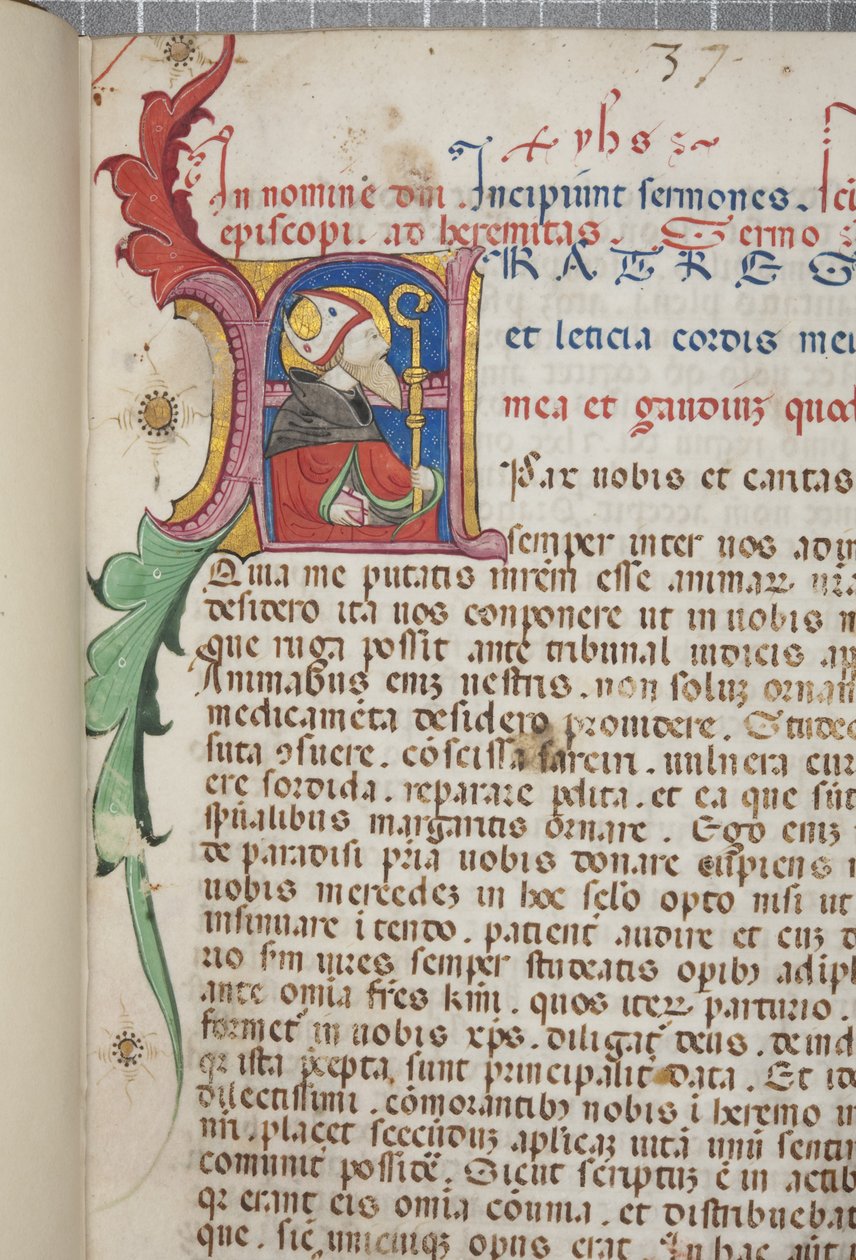 37
+ yhs
In nomine dni . Incipiunt sermones . sci
episcopi . ad heremitas . Sermo
FRATRES
et leticia cordis mei
mea et gaudiuʒ quod
Pax uobis et caritas
semper inter uos adim
Quia me putatis mrem esse animaꝝ ura
desidero ita uos conponere ut in uobis
que ruga possit ante tribunal iudicis ap
Animabus eniʒ uestris . non soluʒ ornam
medicamēta desidero prouidere . Studeo
suta ꝯsuere . cōscissa sarciri . uulnera cur
ere sordida . reparare pdita . et ea que sūt
spūalibus margaritis ornare . Ego eniʒ
de paradisi pria uobis donare cupiens
uobis mercedeʒ in hoc sclo opto nisi ut
insinuare itendo . patient audire et eiʒ
rio sm uires semper studeatis opibꝫ adipl
ante omia fres kmi . quos iteꝝ parturio .
formet in uobis xps . diligat deus . deind
qꝛ ista pcepta sunt principalit data . Et id
dilectissimi . cōmorantibꝫ nobis i heremo
mi . placet secūduʒ aplicaʒ uitā
comunit possitē . Sicut scriptuʒ ē in actib
qꝛ erant eis omia cōunia . et distribuebat
que . sic unicuiqʒ opus erat . In hac